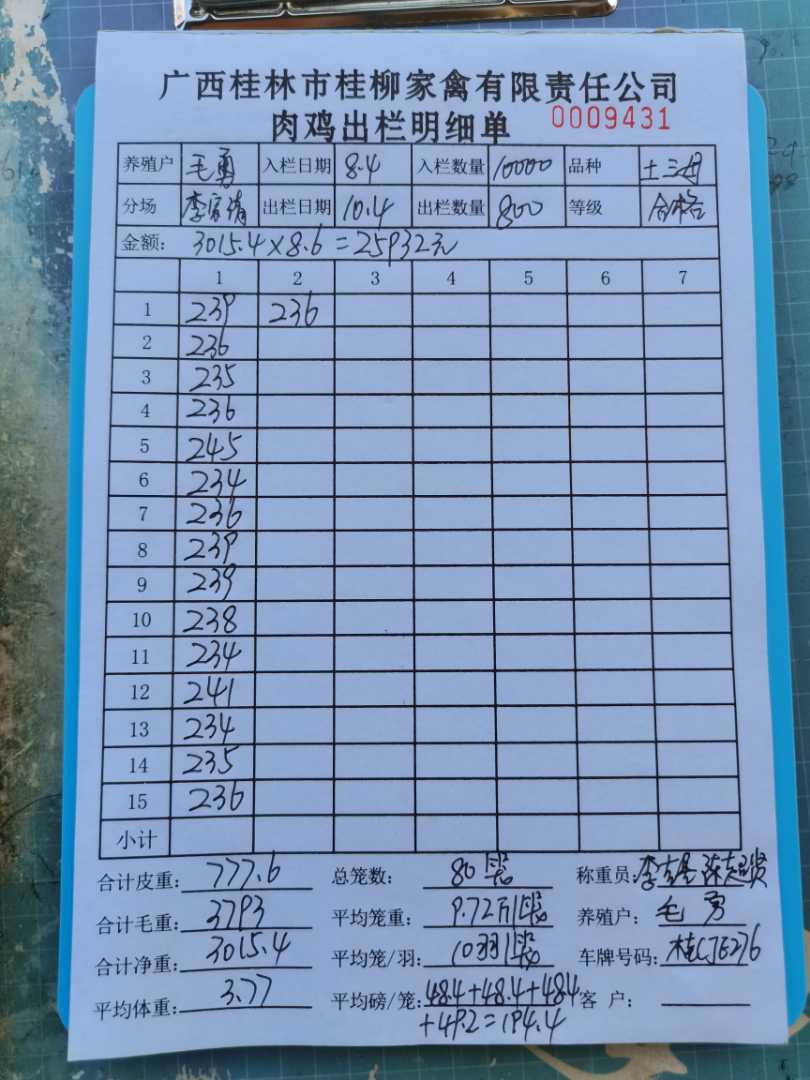 广西桂林市桂柳家禽有限责任公司
肉鸡出栏明细单 0009431
养殖户 毛勇 入栏日期 8.4 入栏数量 10000 品种 土三母
分场 出栏日期 10.4 出栏数量 800 等级 合格
金额: 3015.4×8.6=25932元
1 2 3 4 5 6 7
1 239 236
2 236
3 235
4 236
5 245
6 234
7 236
8 239
9 239
10 238
11 234
12 241
13 234
14 235
15 236
小计
合计皮重: 777.6 总笼数: 80笼 称重员:
合计毛重: 3793 平均笼重: 9.72斤/笼 养殖户: 毛勇
合计净重: 3015.4 平均笼/羽: 10羽/笼 车牌号码: 桂CJE276
平均体重: 3.77 平均磅/笼: 48.4+48.4+48.4 客户:
+49.2=194.4